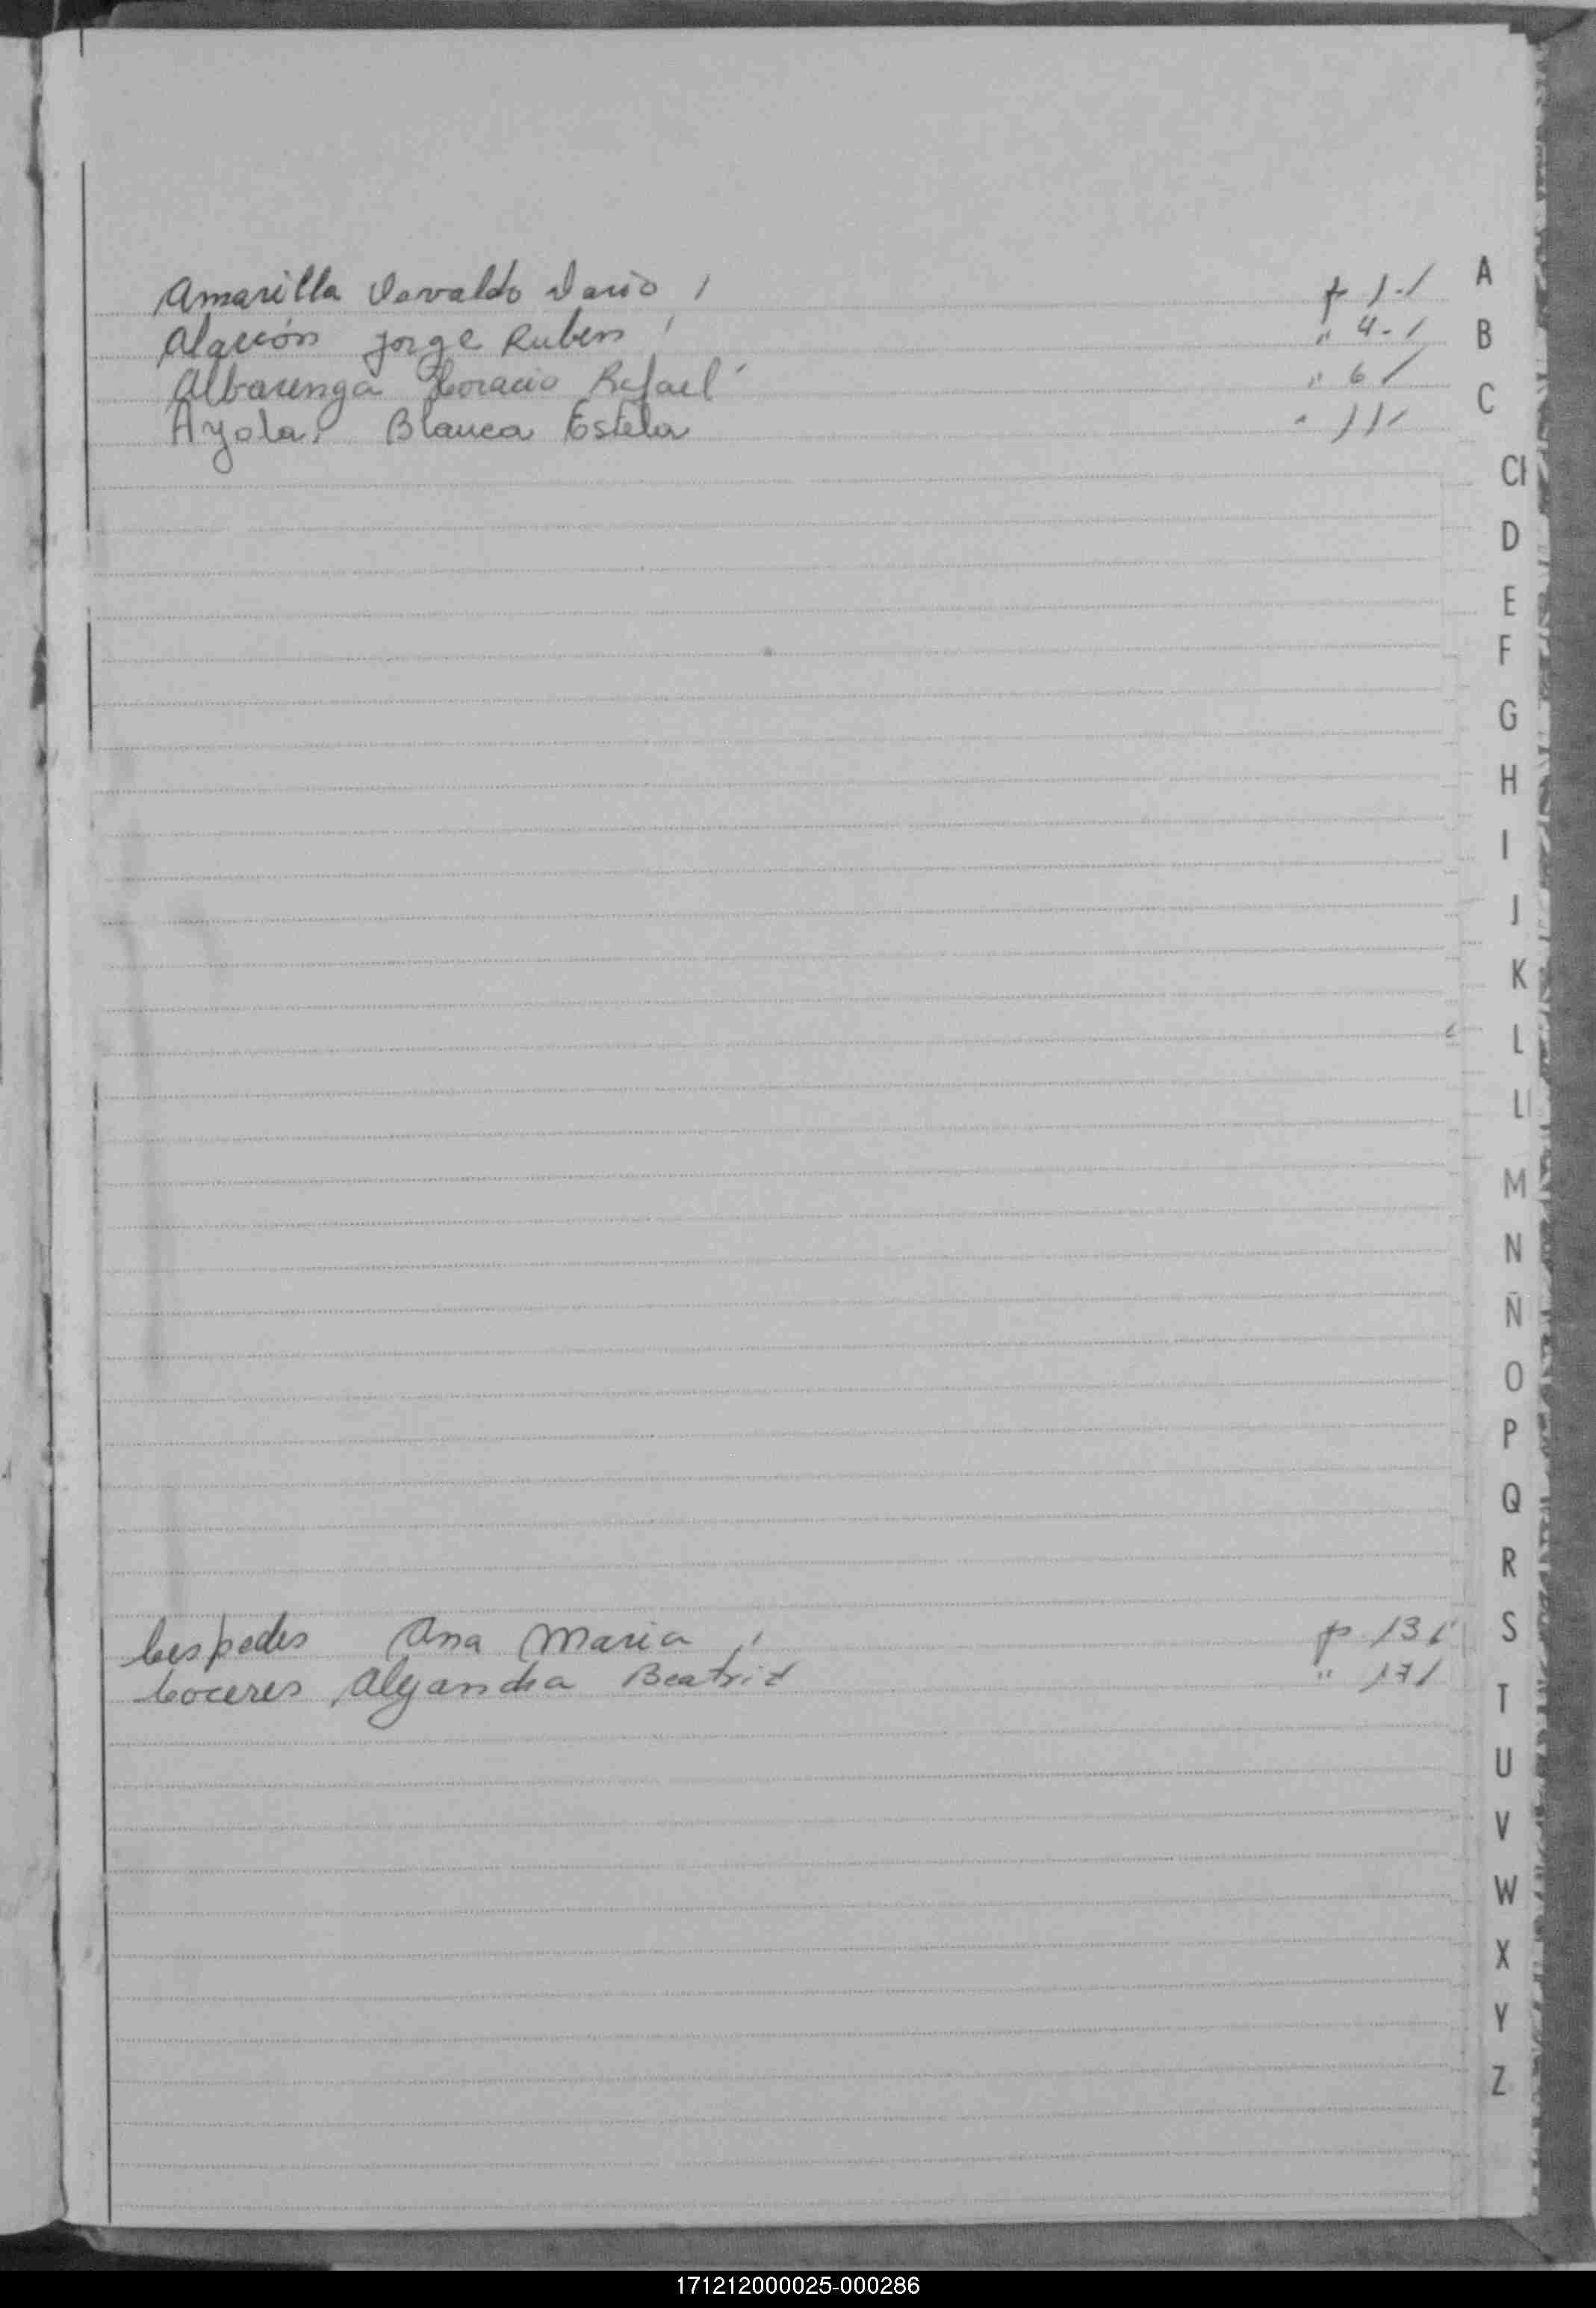 Amarilla Osvaldo Dario / p 1-/
Alarcón Jorge Ruben / " 4-/
Albarenga Horacio Rafael " 6/
Ayola, Blanca Estela " 11/
Cespedes Ana Maria / p 13/
Coceres Alejandra Beatriz " 17/
A
B
C
CH
D
E
F
G
H
I
J
K
L
Ll
M
N
Ñ
O
P
Q
R
S
T
U
V
W
X
Y
Z
171212000025-000286